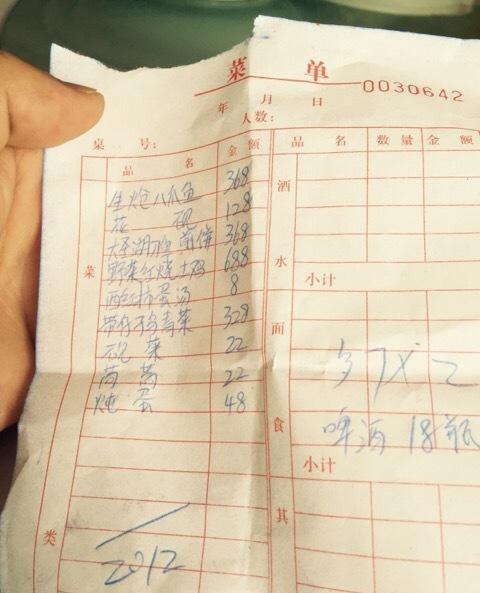 菜 单
0030642
年 月 日
桌 号: 人数:
品 名 金 额 品 名 数 量 金 额
生炝八爪鱼 368
花 砚 128
368
野菜红烧土鸡 688
西红柿蛋汤 8
青菜 328
菜 22
茼蒿 22
炖蛋 48
2012
菜
类
酒
水
小计
面
食
X 2
啤酒 18瓶
小计
其